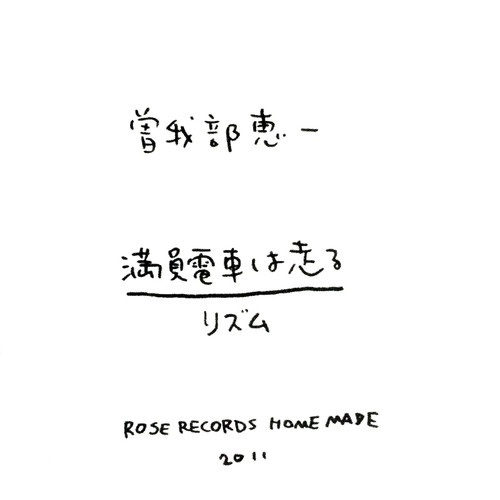 曽我部恵一
満員電車は走る
リズム
ROSE RECORDS HOME MADE
2011